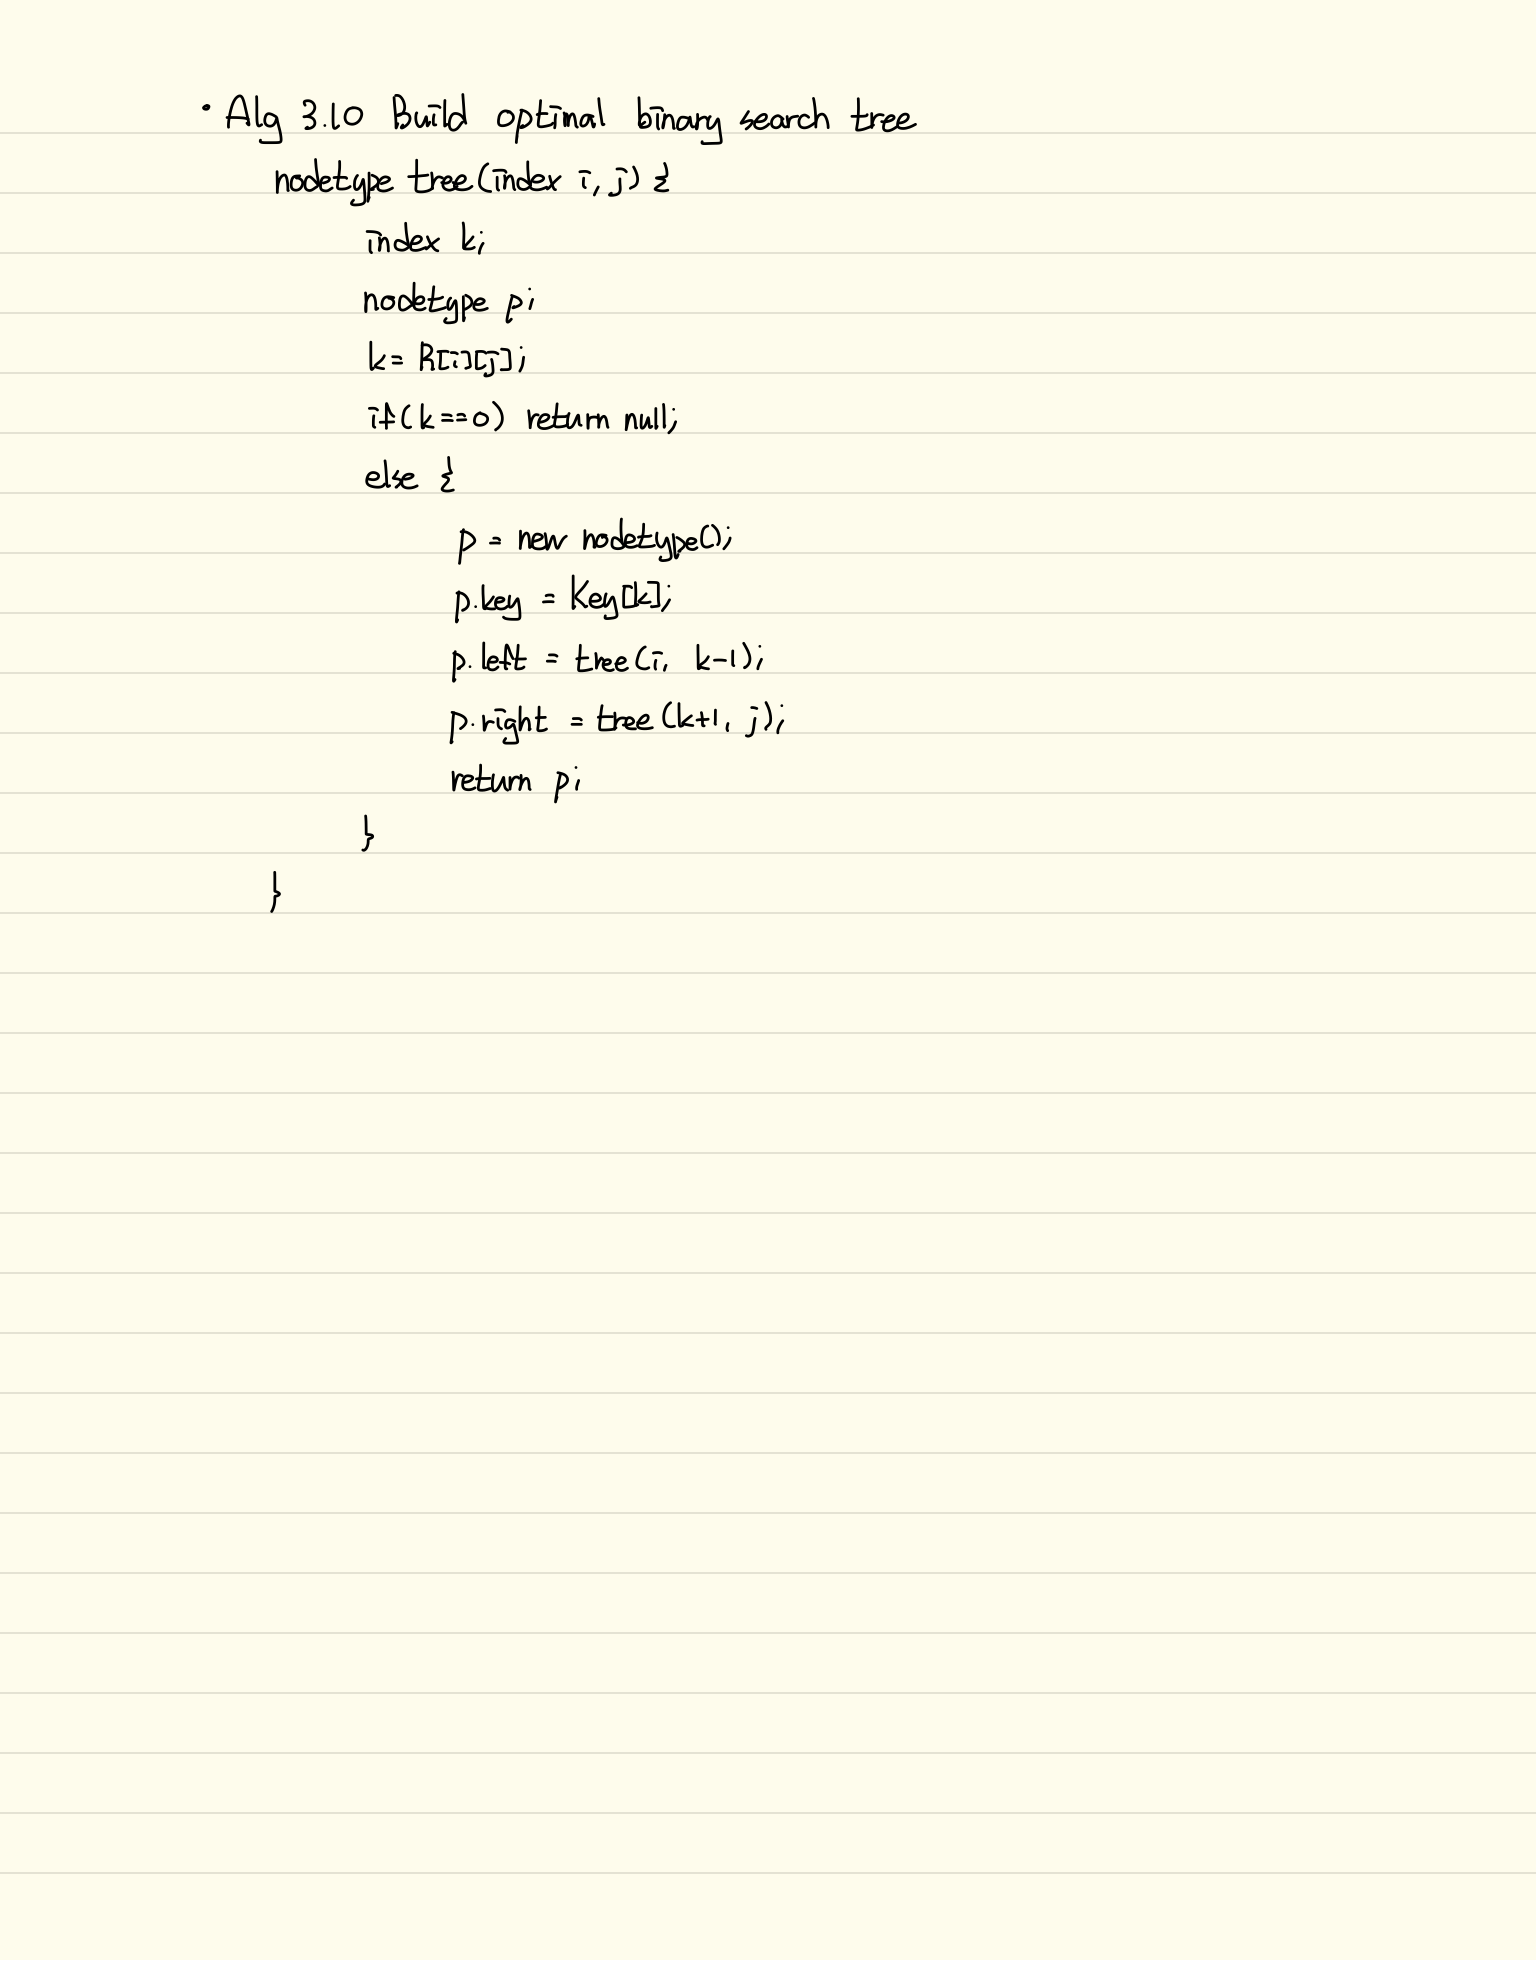 · Alg 3.10 Build optimal binary search tree
nodetype tree(index i, j) {
index k;
nodetype p;
k = R[i][j];
if(k==0) return null;
else {
p = new nodetype();
p.key = Key[k];
p.left = tree(i, k-1);
p.right = tree(k+1, j);
return p;
}
}